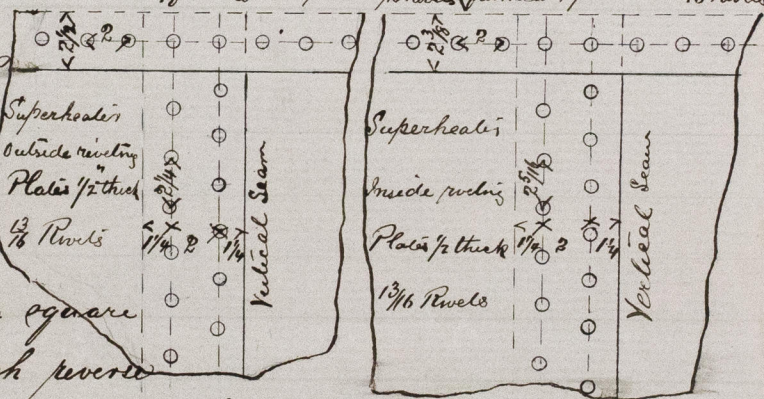 2½ 2
Superheater
Outside riveting
Plates ½" thick
13/16 Rivets
2¼
1¼ 2 1¼
Vertical Seam
square
reverse
2⅜ 2
Superheater
Inside riveting
Plates ½ thick
13/16 Rivets
2 5/16
1¼ 2 1¼
Vertical Seam